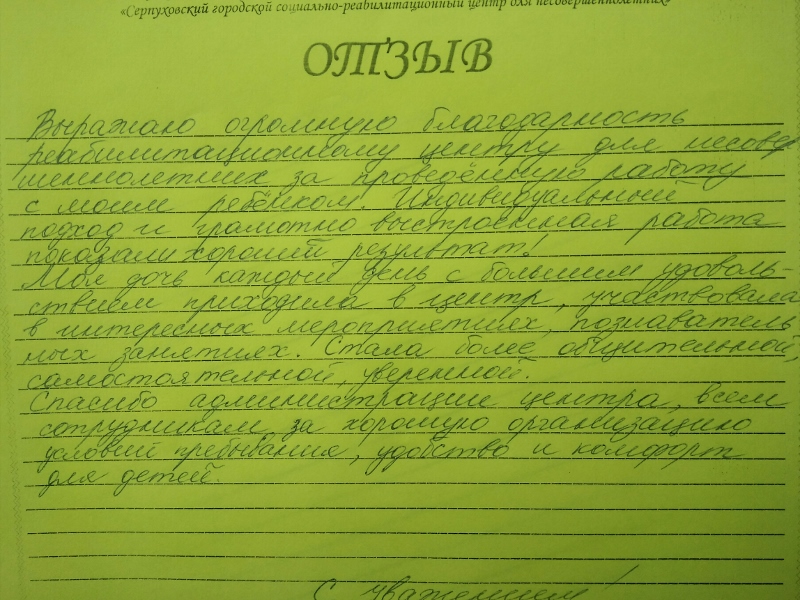 «Серпуховский городской социально-реабилитационный центр для несовершеннолетних»
ОТЗЫВ
Выражаю огромную благодарность
реабилитационному центру для несовер
шеннолетних за проведённую работу
с моим ребёнком. Индивидуальный
подход и грамотно выстроенная работа
показали хороший результат!
Моя дочь каждый день с большим удоволь-
ствием приходила в центр, участвовала
в интересных мероприятиях, познаватель
ных занятиях. Стала более общительной,
самостоятельной, уверенной.
Спасибо администрации центра, всем
сотрудникам, за хорошую организацию
условий пребывания, удобство и комфорт
для детей.
С уважением!